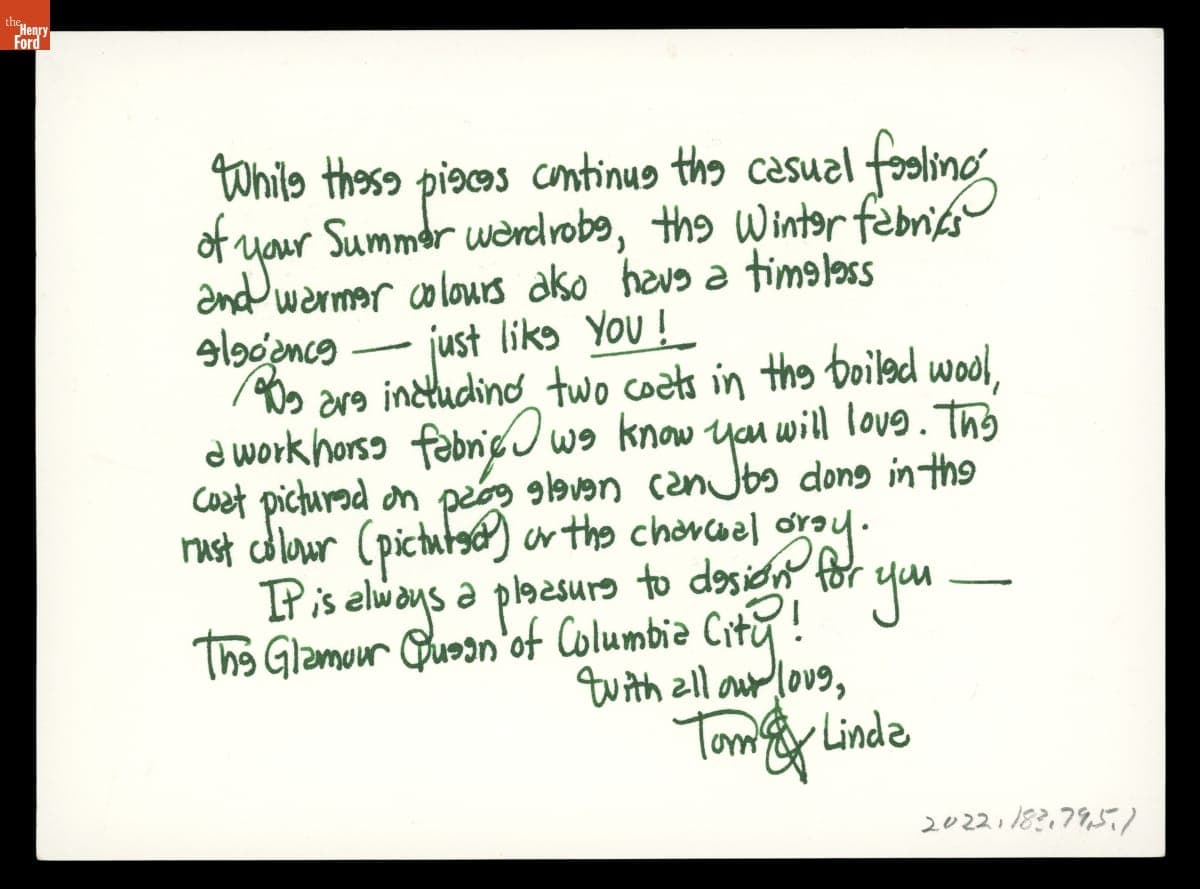 the
Henry
Ford
While these pieces continue the casual feeling
of your Summer wardrobe, the Winter fabrics
and warmer colours also have a timeless
elegance — just like YOU!
We are including two coats in the boiled wool,
a workhorse fabric we know you will love. The
coat pictured on page eleven can be done in the
rust colour (pictured) or the charcoal grey.
It is always a pleasure to design for you —
The Glamour Queen of Columbia City!
With all our love,
Tom & Linda
2022.183.79.5.1